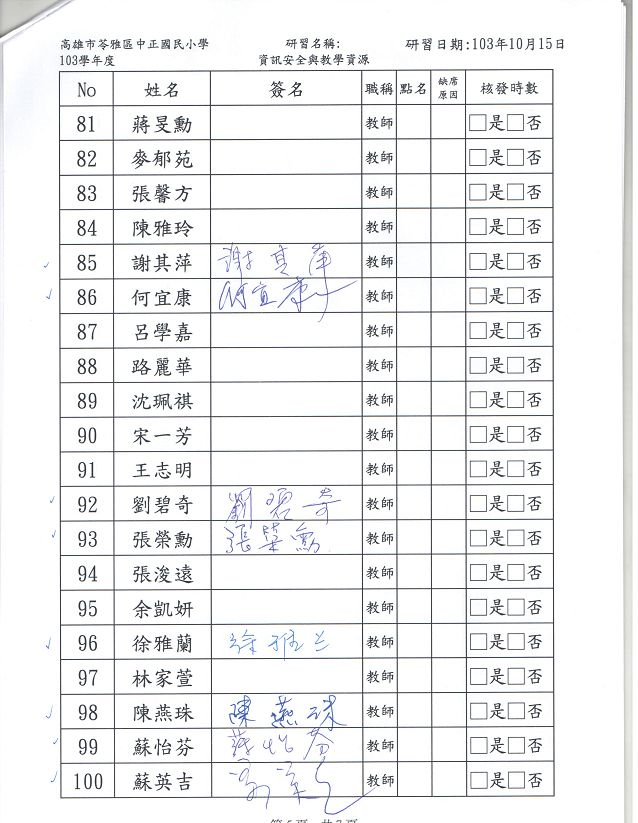 高雄市苓雅區中正國民小學 研習名稱: 研習日期:103年10月15日
103學年度 資訊安全與教學資源
No 姓名 簽名 職稱 點名 缺席原因 核發時數
81 蔣旻勳 教師 □是□否
82 麥郁苑 教師 □是□否
83 張馨方 教師 □是□否
84 陳雅玲 教師 □是□否
85 謝其萍 謝其萍 教師 □是□否
86 何宜康 何宜康 教師 □是□否
87 呂學嘉 教師 □是□否
88 路麗華 教師 □是□否
89 沈珮祺 教師 □是□否
90 宋一芳 教師 □是□否
91 王志明 教師 □是□否
92 劉碧奇 劉碧奇 教師 □是□否
93 張榮勳 張榮勳 教師 □是□否
94 張浚遠 教師 □是□否
95 余凱妍 教師 □是□否
96 徐雅蘭 徐雅兰 教師 □是□否
97 林家萱 教師 □是□否
98 陳燕珠 陳燕珠 教師 □是□否
99 蘇怡芬 蘇怡芬 教師 □是□否
100 蘇英吉 教師 □是□否